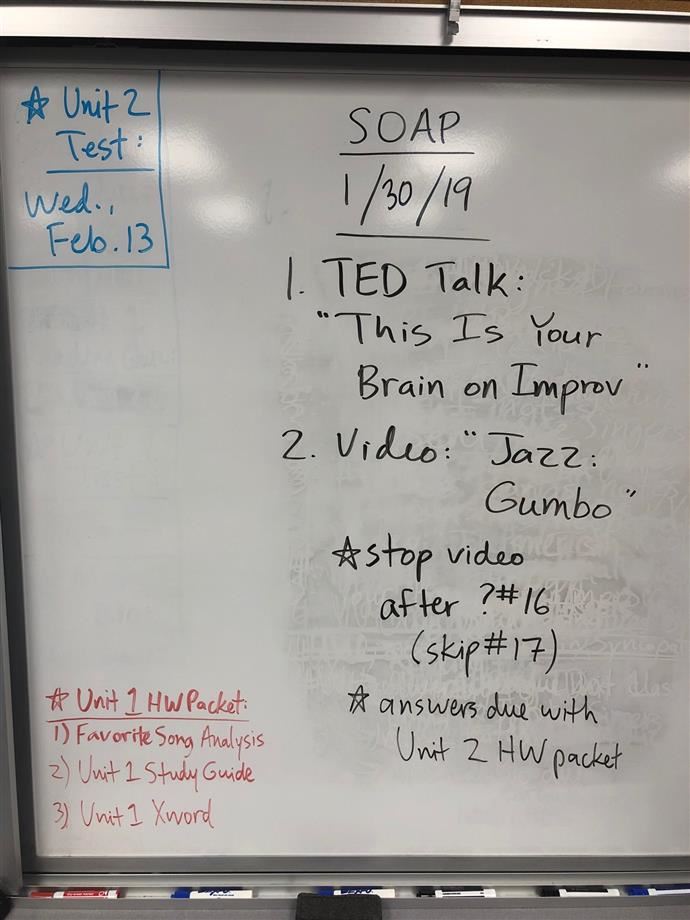 ☆ Unit 2
Test:
Wed.,
Feb. 13
SOAP
1/30/19
1. TED Talk:
"This Is Your
Brain on Improv"
2. Video: "Jazz:
Gumbo"
☆ stop video
after ?#16
(skip #17)
☆ answers due with
Unit 2 HW packet
☆ Unit 1 HW Packet:
1) Favorite Song Analysis
2) Unit 1 Study Guide
3) Unit 1 Xword